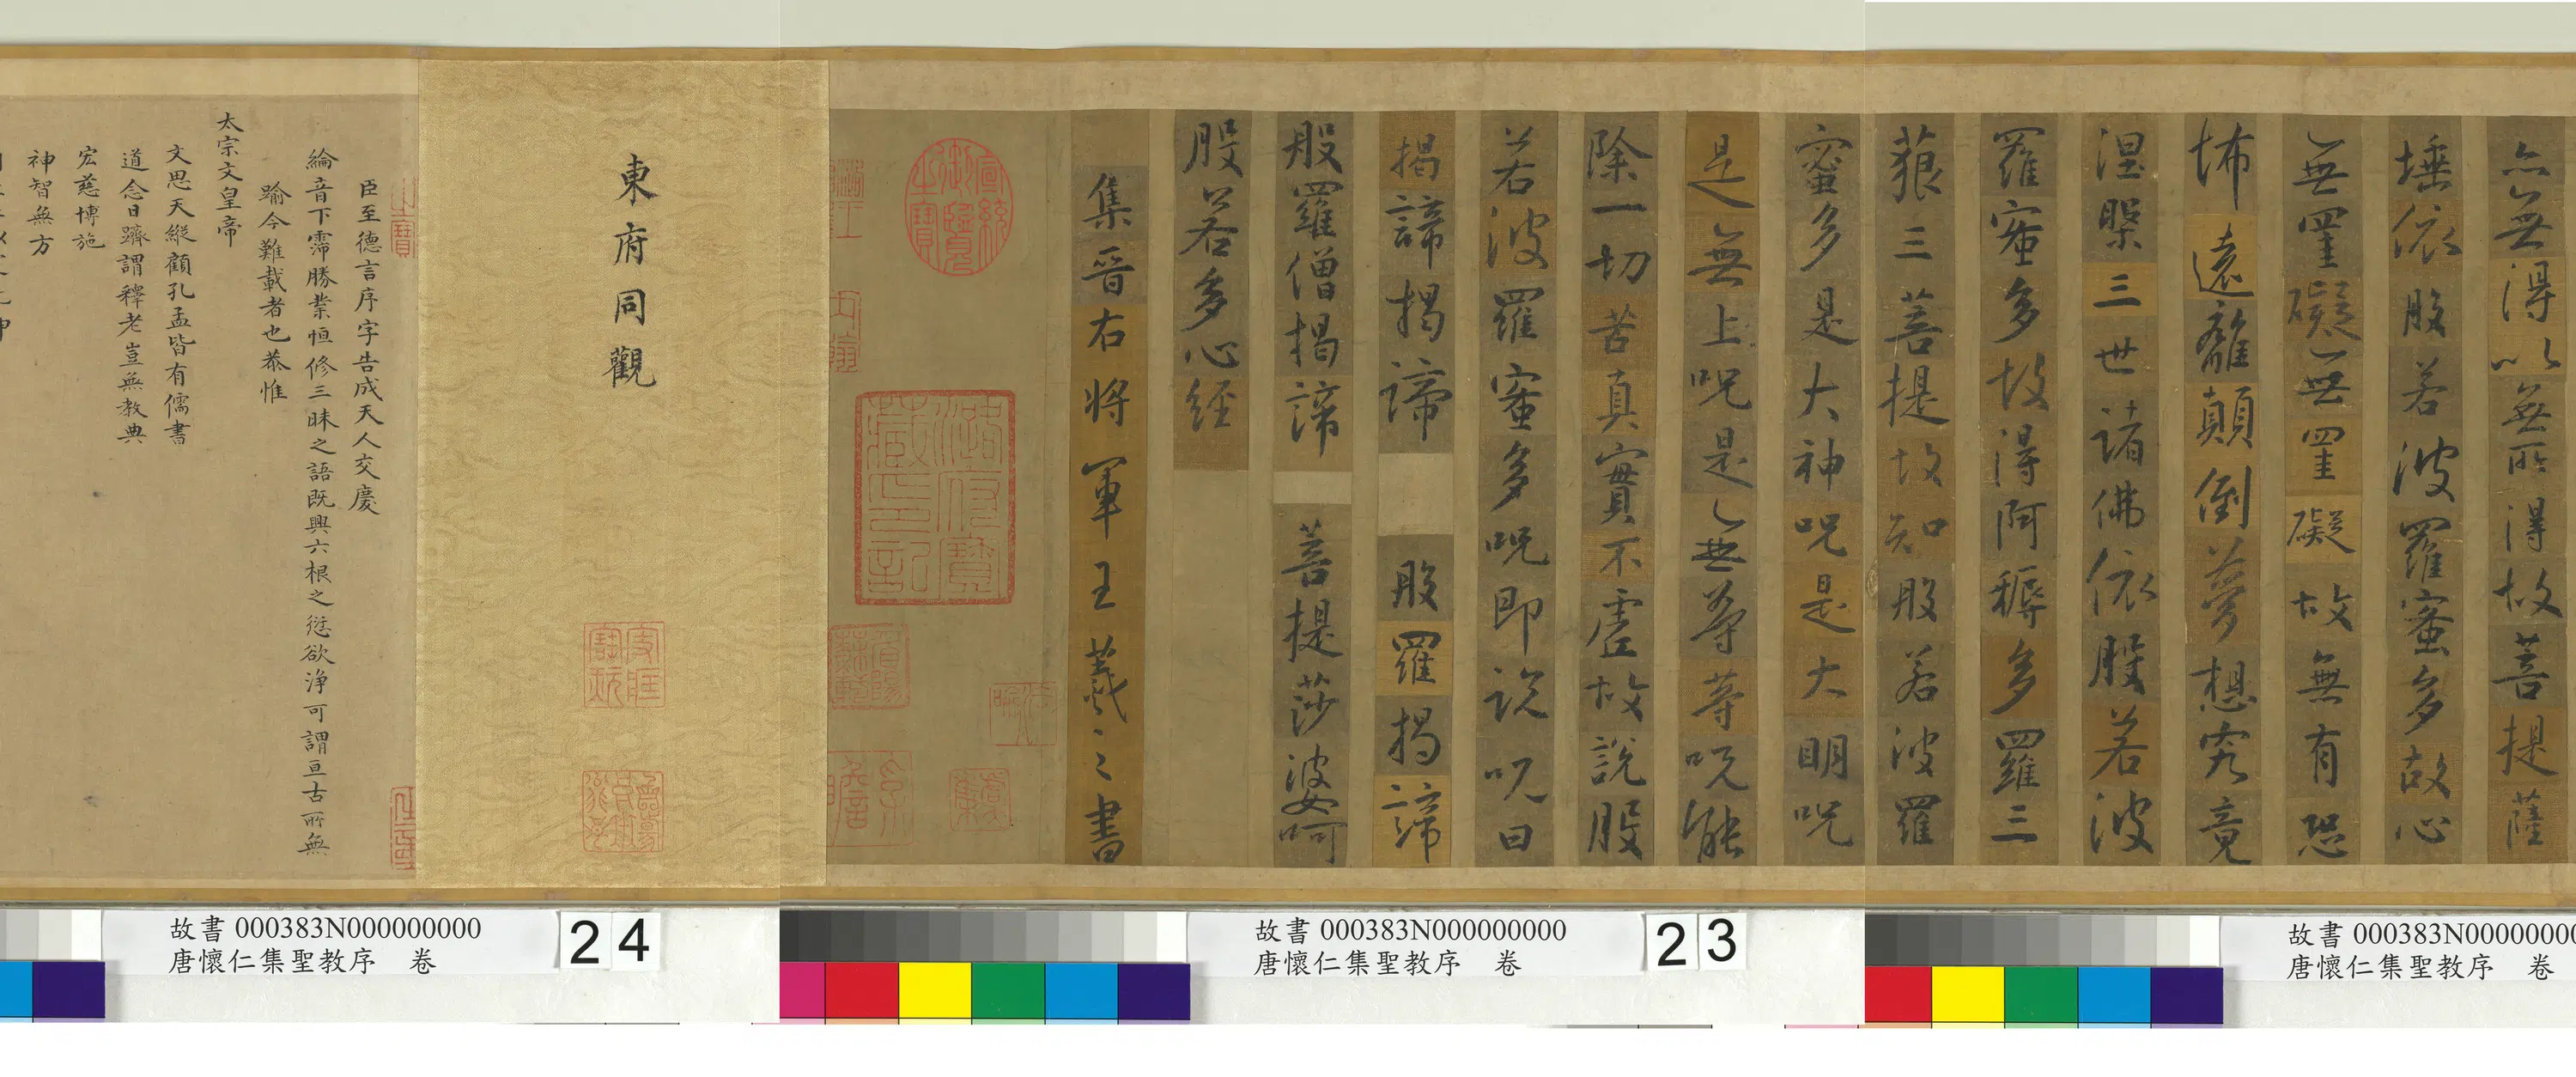 亦無得以無所得故菩提薩
埵依般若波羅蜜多故心
無罣礙無罣礙故無有恐
怖遠離顛倒夢想究竟
涅槃三世諸佛依般若波
羅蜜多故得阿耨多羅三
藐三菩提故知般若波羅
蜜多是大神呪是大明呪
是無上呪是無等等呪能
除一切苦真實不虛故說般
若波羅蜜多呪即說呪曰
揭諦揭諦 般羅揭諦
般羅僧揭諦 菩提莎婆呵
般若多心經
集晉右將軍王羲之書
宣統御覽之寶
潞府寶藏印記
東府同觀
臣至德言序字告成天人交慶
綸音下霈勝業恒修三昧之語既興六根之愆欲淨可謂亘古所無
踰今難載者也恭惟
太宗文皇帝
文思天縱顧孔孟皆有儒書
道念日躋謂釋老豈無教典
宏慈博施
神智無方
故書 000383N00000000
唐懷仁集聖教序 卷
故書 000383N000000000
唐懷仁集聖教序 卷
23
故書 000383N000000000
唐懷仁集聖教序 卷
24